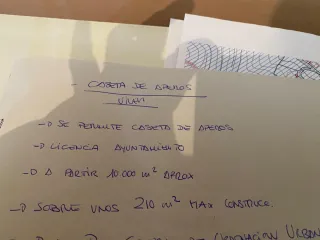 - CASETA DE APEROS
→ SE PERMITE CASETA DE APEROS
→ LICENCIA AYUNTAMIENTO
→ A PARTIR 10.000 m² APROX
→ SOBRE UNOS 210 m² MAX CONSTRUC.
URBAN